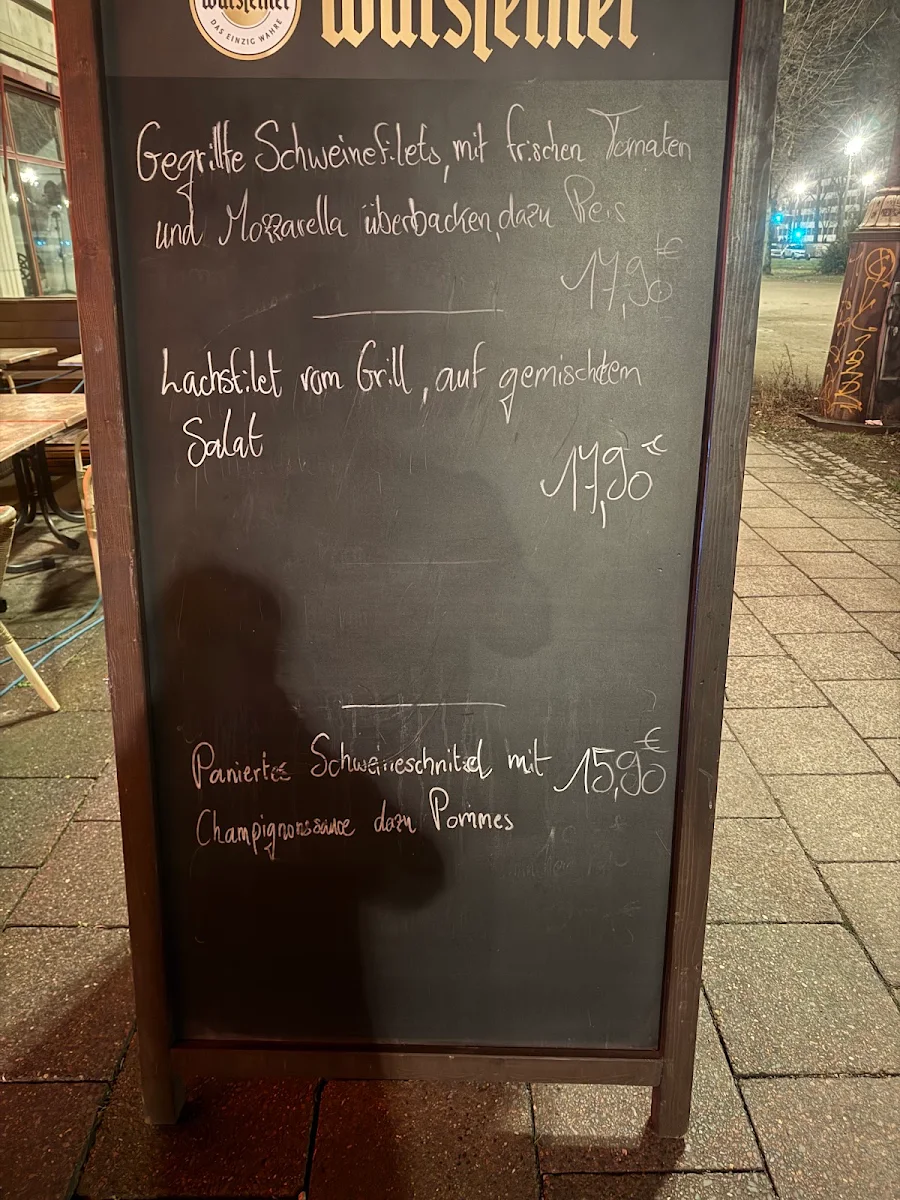 Warsteiner
DAS EINZIG WAHRE
Warsteiner
Gegrillte Schweinefilets, mit frischen Tomaten
und Mozzarella überbacken, dazu Reis
17,90 €
Lachsfilet vom Grill, auf gemischtem
Salat
17,90 €
Paniertes Schweineschnitzel mit 15,90 €
Champignonssauce dazu Pommes